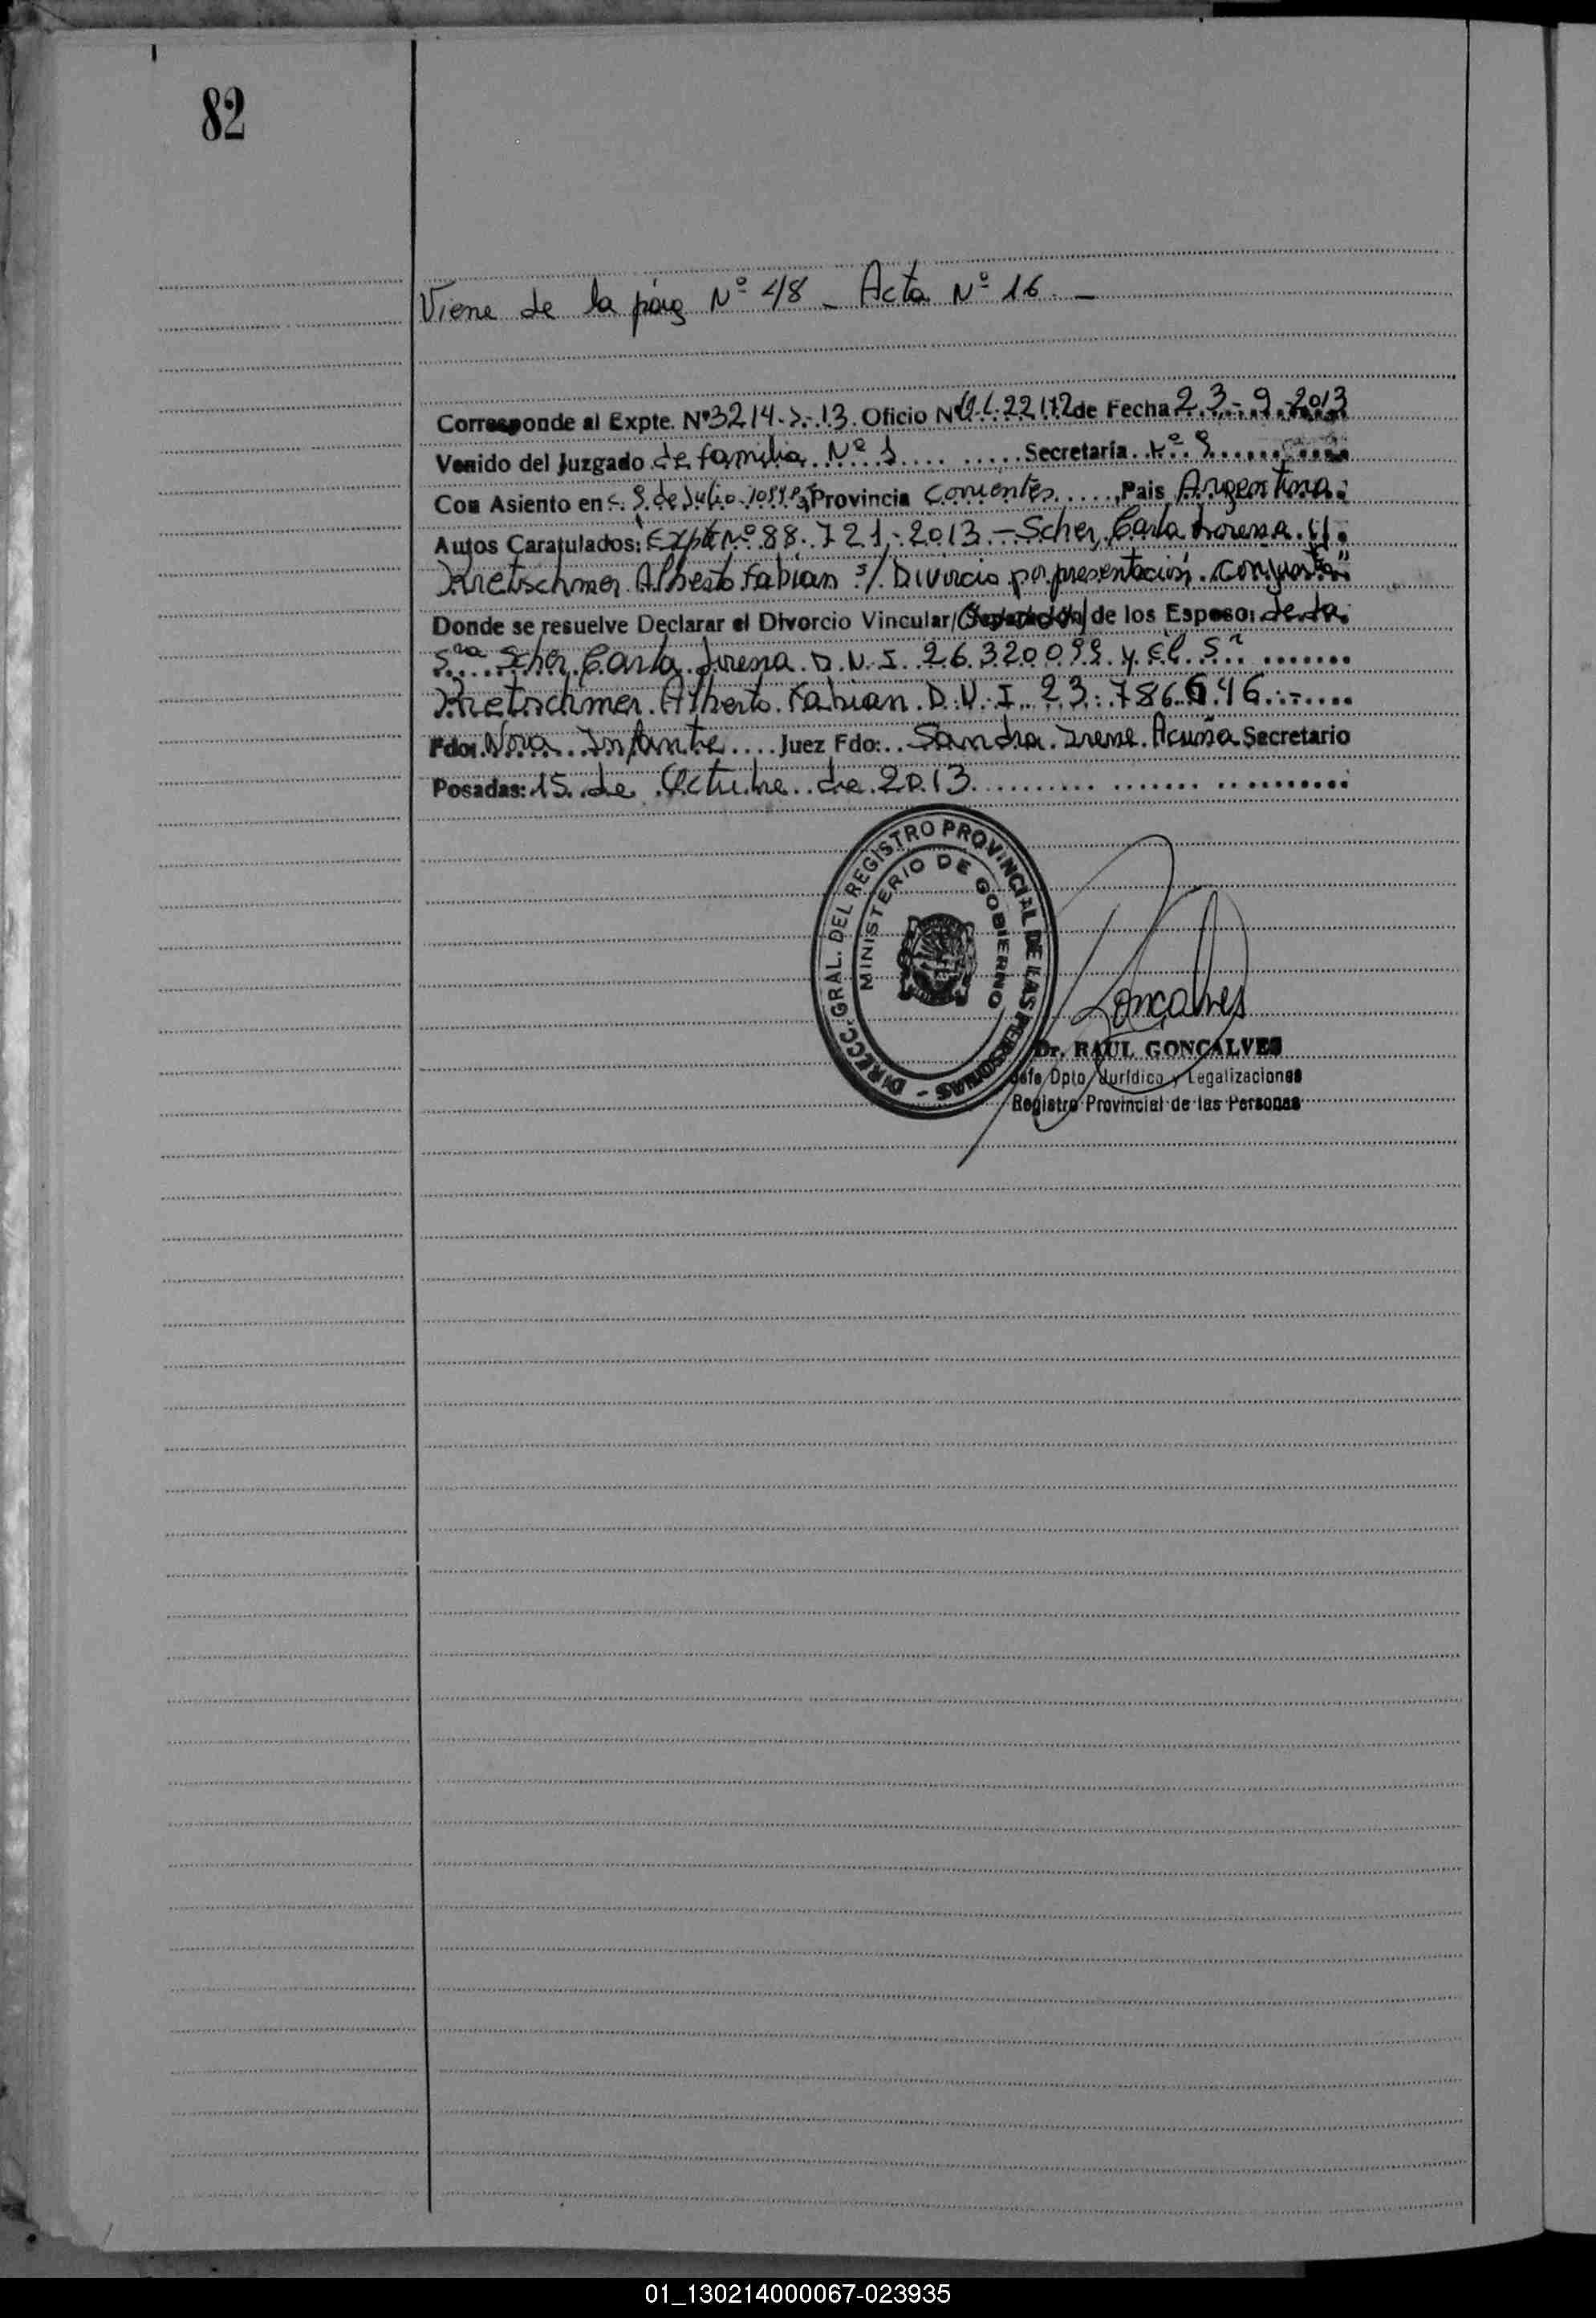 82
Viene de la pág Nº 48 - Acta Nº 16. -
Corresponde al Expte. Nº 3214-S-13. Oficio Nº de Fecha 23-9-2013
Venido del Juzgado de familia Nº 1 Secretaría Nº
Con Asiento en c. 9 de Julio Provincia Corrientes País Argentina.
Autos Caratulados: Expte Nº 88.721-2013 - Scher, Carla Lorena y
Kretschmer Alberto Fabian s/ Divorcio por presentación conjunta"
Donde se resuelve Declarar el Divorcio Vincular/ de los Esposo: de la
Sra Scher Carla Lorena D.N.I. 26.320.099 y el Sr
Kretschmer Alberto Fabian D.N.I. 23.786.646.-
Fdo: Infante Juez Fdo: Sandra Irene Acuña Secretario
Posadas: 15 de Octubre de 2013
DIRECC. GRAL. DEL REGISTRO PROVINCIAL DE LAS PERSONAS -
MINISTERIO DE GOBIERNO
Goncalves
Dr. RAUL GONCALVES
Jefe Dpto Jurídico y Legalizaciones
Registro Provincial de las Personas
01_130214000067-023935